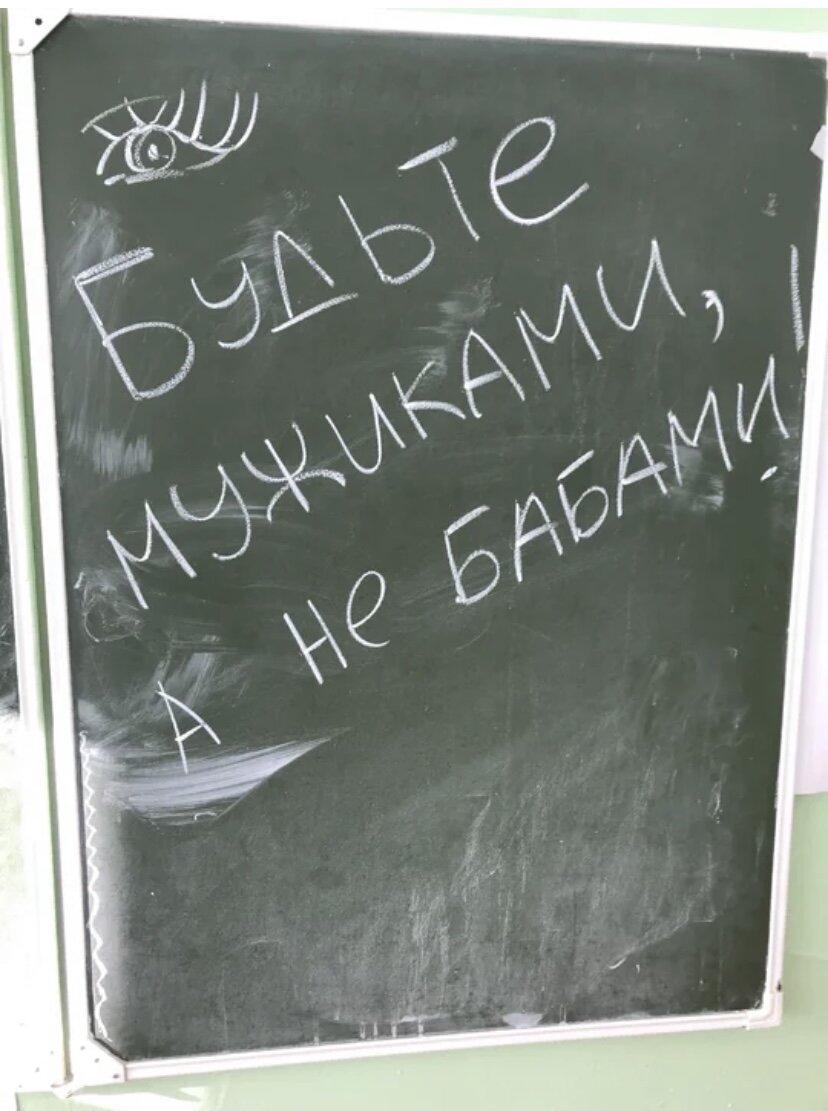 Будьте
мужиками,
а не БАБАМИ